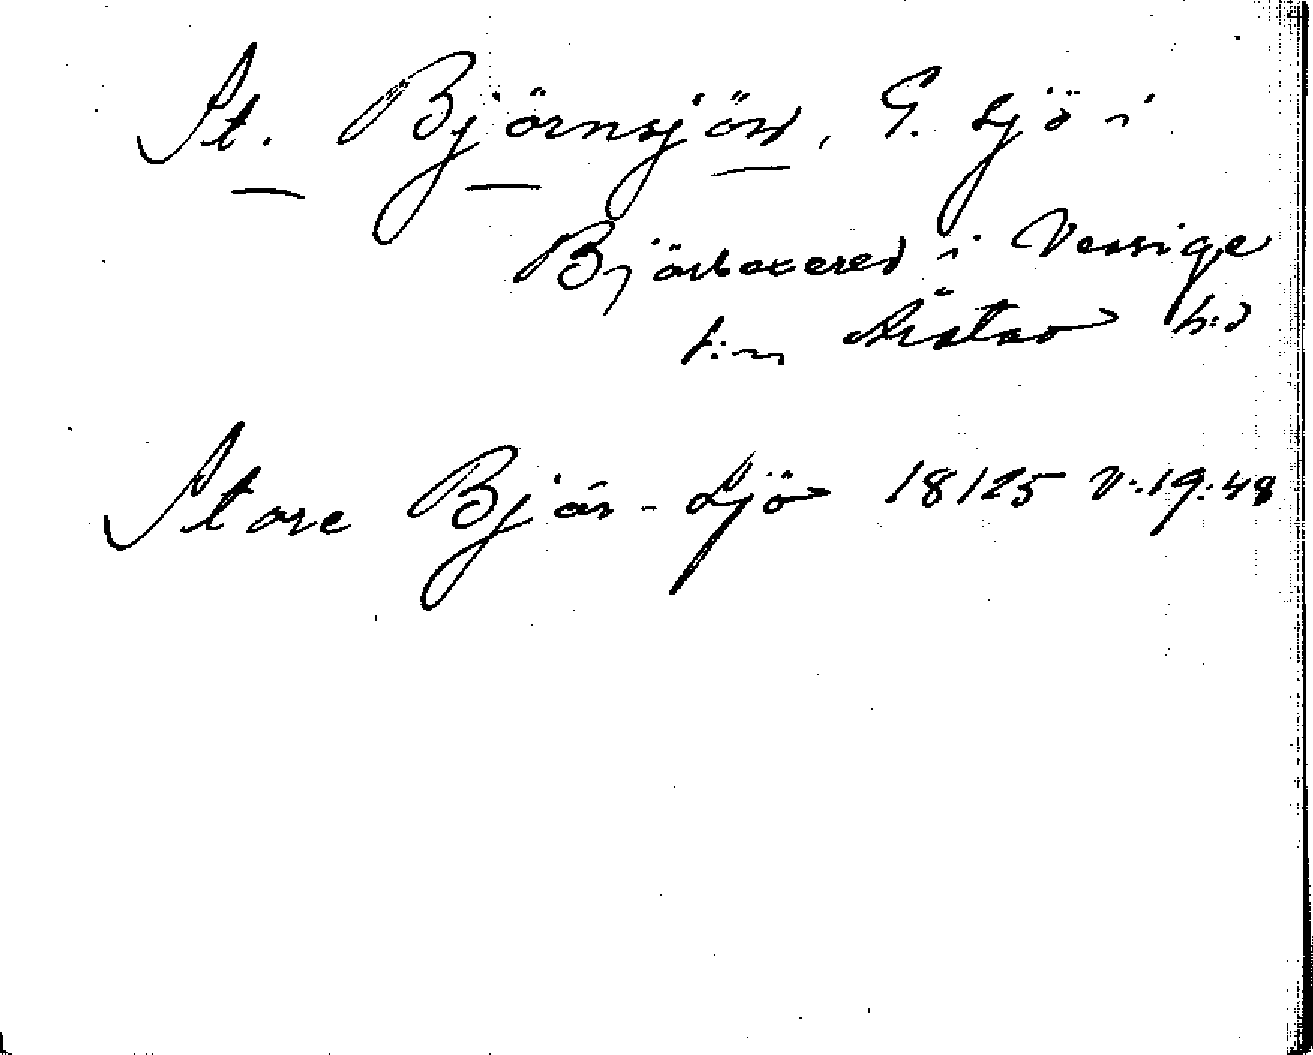 St. Björnsjön, G. sjö i
Björbäxered i Vessige
s:n Årstad h:d
Store Björ-Sjö 1825 V:19:48